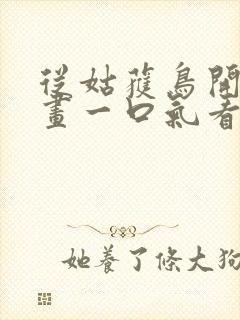 從姑獲鳥開
畫一口氣看
她養了條大狗